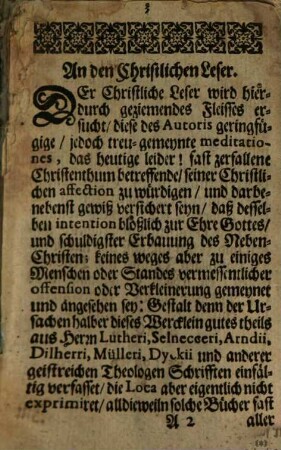 3
An den Christlichen Leser.
DEr Christliche Leser wird hier-
durch geziemendes Fleisses er-
sucht/ diese des Autoris geringfü-
gige / jedoch treu-gemeynte meditatio-
nes, das heutige leider! fast zerfallene
Christenthum betreffende/ seiner Christli-
chen affection zu würdigen / und darbe-
nebenst gewiß versichert seyn/ daß dessel-
ben intention blößlich zur Ehre Gottes/
und schuldigster Erbauung des Neben-
Christen; keines weges aber zu einiges
Menschen oder Standes vermessentlicher
offension oder Verkleinerung gemeynet
und angesehen sey: Gestalt denn der Ur-
sachen halber dieses Wercklein gutes theils
aus Herrn Lutheri, Selnecceri, Arndii,
Dilherri, Mülleri, Dyckii und anderer
geistreichen Theologen Schrifften einfäl-
tig verfasset/ die Loca aber eigentlich nicht
exprimiret/ alldieweiln solche Bücher fast
A 2 aller